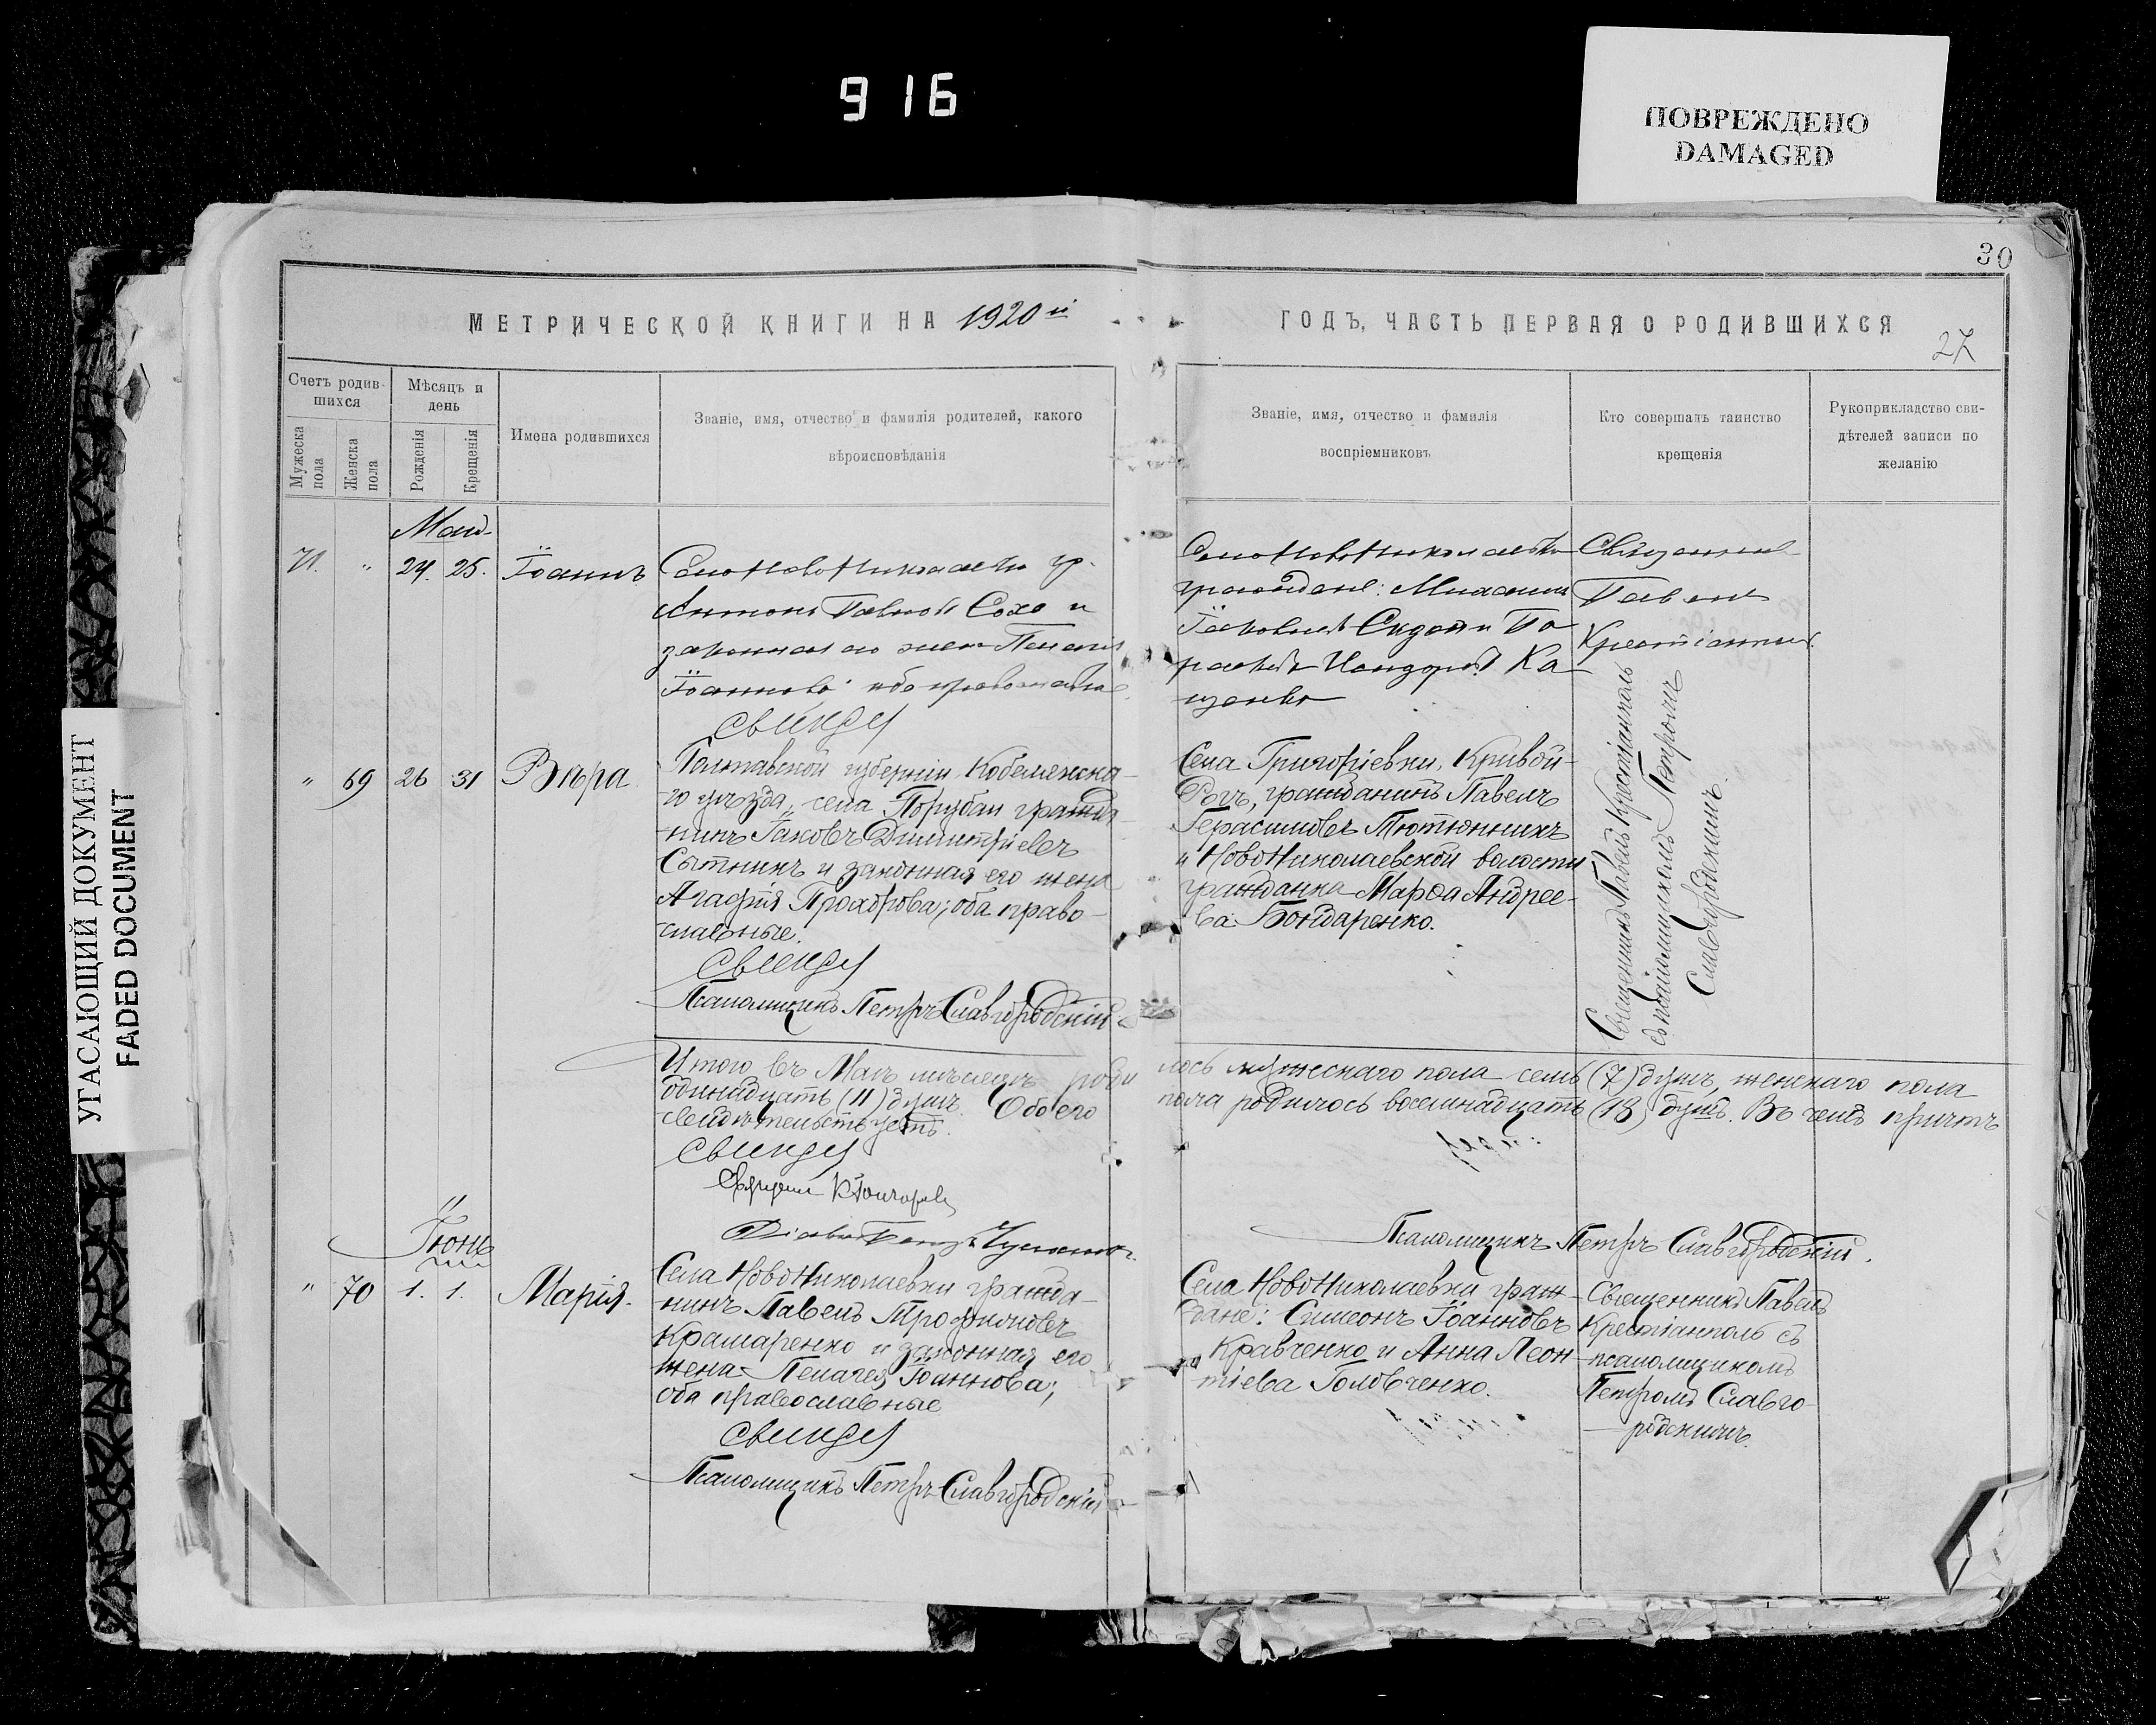 916
ПОВРЕЖДЕНО
DAMAGED
УГАСАЮЩИЙ ДОКУМЕНТ
FADED DOCUMENT
30
МЕТРИЧЕСКОЙ КНИГИ НА 1920й
ГОДЪ, ЧАСТЬ ПЕРВАЯ О РОДИВШИХСЯ
27
Счетъ родив-
шихся
Мужеска
пола
Женска
пола
Мѣсяцъ и
день
Рожденія
Крещенія
Имена родившихся
Званіе, имя, отчество и фамилія родителей, какого
вѣроисповѣданія
Званіе, имя, отчество и фамилія
воспріемниковъ
Кто совершалъ таинство
крещенія
Рукоприкладство сви-
дѣтелей записи по
желанію
Май
71. " 24. 25. Іоаннъ
гр.
Антонъ Сохо и
законная его жена
Іоаннова оба православные
граждане:
Павелъ
" 69 26 31 Вѣра
Полтавской губерніи, Кобелякска-
го уѣзда, села гражда-
нинъ Іаковъ Димитріевъ
Сытникъ и законная его жена
Агафія Прохорова; оба право-
славные.
Псаломщикъ Петръ Славгородскій
Села Григоріевки, Кривой-
Рогъ, гражданинъ Павелъ
Герасимовъ Тютюнникъ
и НовоНиколаевской волости
гражданка Марѳа Андрее-
ва Бондаренко.
Священникъ Павелъ Крестіанполь
съ псаломщикомъ Петромъ
Славгородскимъ.
Итого въ Маѣ мѣсяцѣ роди лось мужескаго пола семь (7) душъ, женскаго пола
одинадцать (11) душъ. Обоего пола родилось восемнадцать (18) душъ. Въ чемъ причтъ
свидѣтельствуетъ.
Псаломщикъ Петръ Славгородскій.
Іюнь
" 70 1. 1. Марія.
Села НовоНиколаевки гражда-
нинъ Павелъ Трофимовъ
Крамаренко и законная его
жена Пелагея Іоаннова;
оба православные
Псаломщикъ Петръ Славгородскій
Села НовоНиколаевки граж-
дане: Симеонъ Іоанновъ
Кравченко и Анна Леон-
тіева Головченко.
Священникъ Павелъ
Крестіанполь съ
псаломщикомъ
Петромъ Славго-
родскимъ.